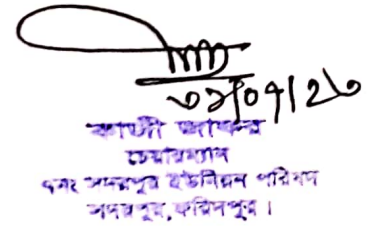 ৩১/০৭/২৩
কাজী জাফর
চেয়ারম্যান
৫নং সদরপুর ইউনিয়ন পরিষদ
সদরপুর, ফরিদপুর।